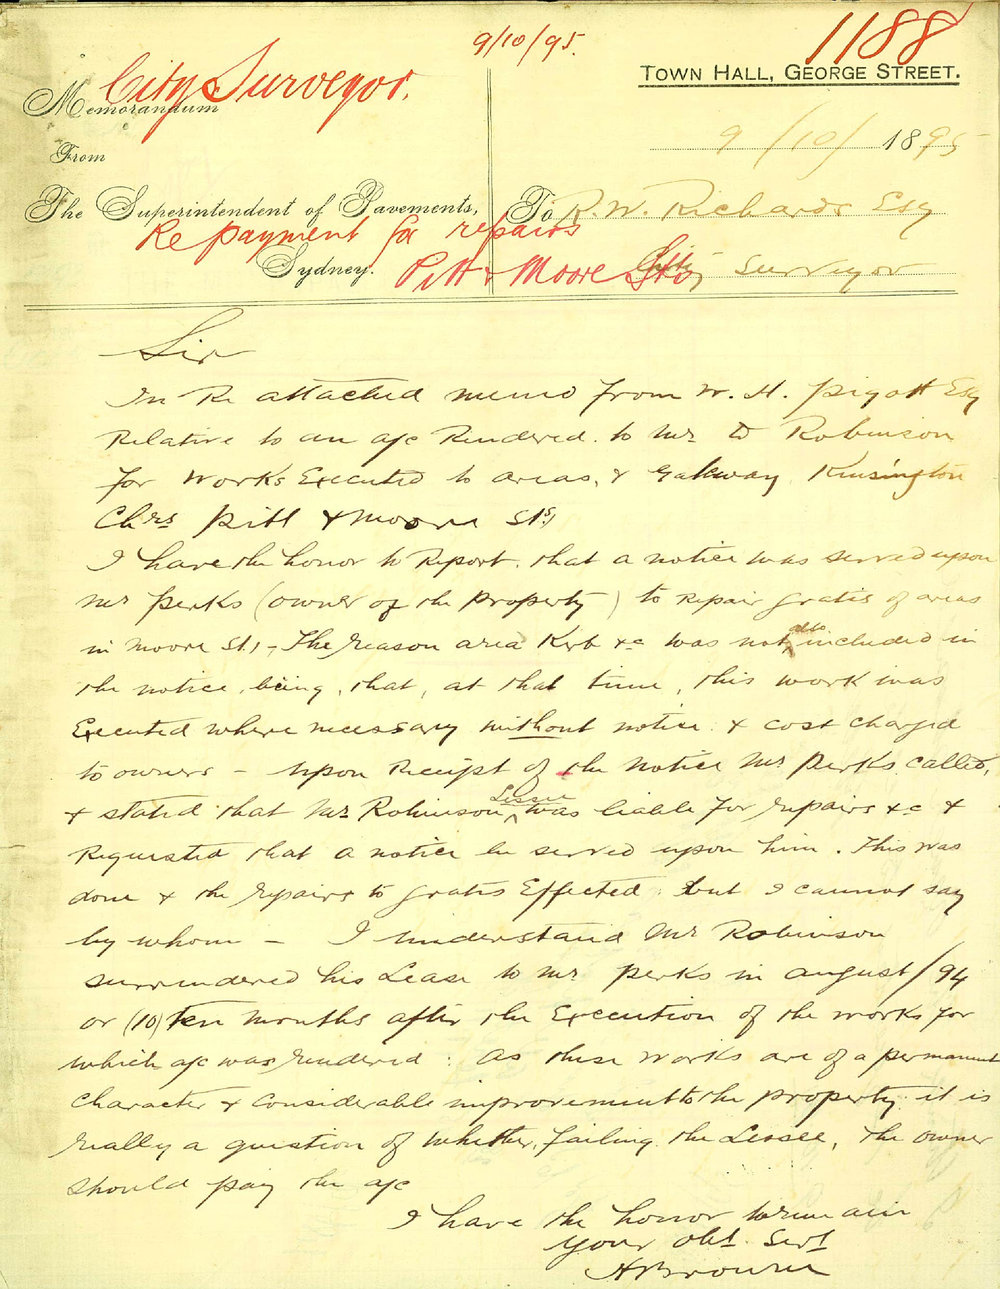 9/10/95.
1188
City Surveyor.
TOWN HALL, GEORGE STREET.
Memorandum
9/10/1895
From
The Superintendent of Pavements,
To R. W. Richards Esq
Re payment for repairs
Sydney.
Pitt & Moore Sts
City Surveyor
Sir
In Re attached memo from W. H. Pigott Esq
Relative to an a/c Rendered to Mr D Robinson
for works Executed to areas, & Gateway Kensington
Chrs Pitt & Moore Sts
I have the honor to Report that a notice was served upon
Mr Perks (owner of the property) to repair gratis of areas
in Moore St, - The reason area Kerb &c was not also included in
the notice, being, that, at that time, this work was
Executed where necessary without notice & cost charged
to owners - Upon Receipt of the notice Mr Perks called,
& stated that Mr Robinson Lessee was liable for repairs &c &
Requested that a notice be served upon him. This was
done & the repairs to gratis Effected but I cannot say
by whom - I understand Mr Robinson
surrendered his Lease to Mr Perks in August/94
or (10) ten months after the Execution of the works for
which a/c was rendered: As these works are of a permanent
character & considerable improvement to the property it is
really a question of whether, failing the Lessee, the owner
should pay the a/c
I have the honor to remain
Your obt Servt
A Browne